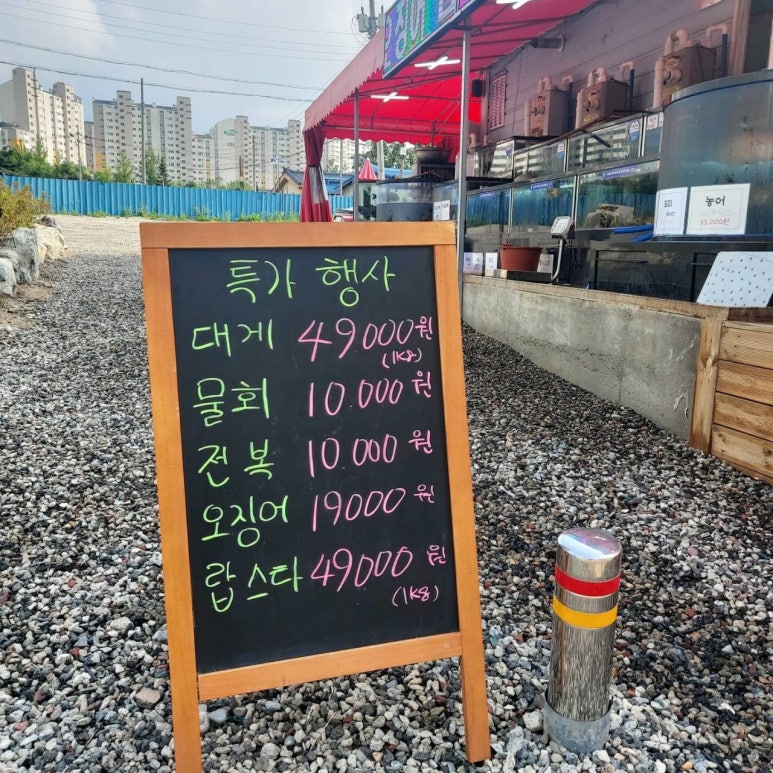 특가 행사
대게 49000원
(1kg)
물회 10.000원
전복 10.000원
오징어 19000원
랍스타 49000원
(1kg)
농어
33,000원